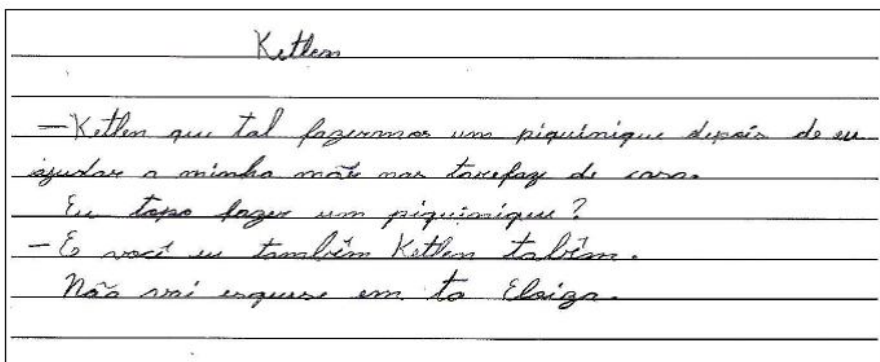 Ketlen
— Ketlen que tal fazermos um piquinique depois de eu
ajudar a minha mãe nas tarefaz de casa.
Eu topo fazer um piquinique?
— E você eu também Ketlen tabém.
Não vai esquese em ta Eloiza.